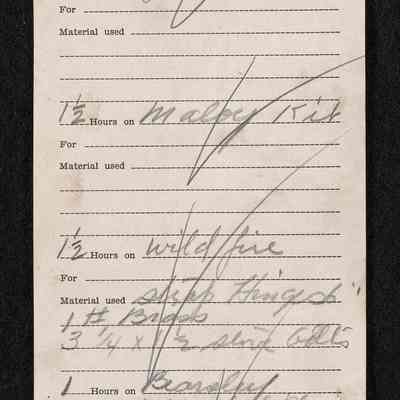 For
Material used
1½ Hours on Maloy Kit
For
Material used
1½ Hours on Wild fire
For
Material used strap Hinges
1 # Brass
3 ¼ x 1½ stove bolts
1 Hours on